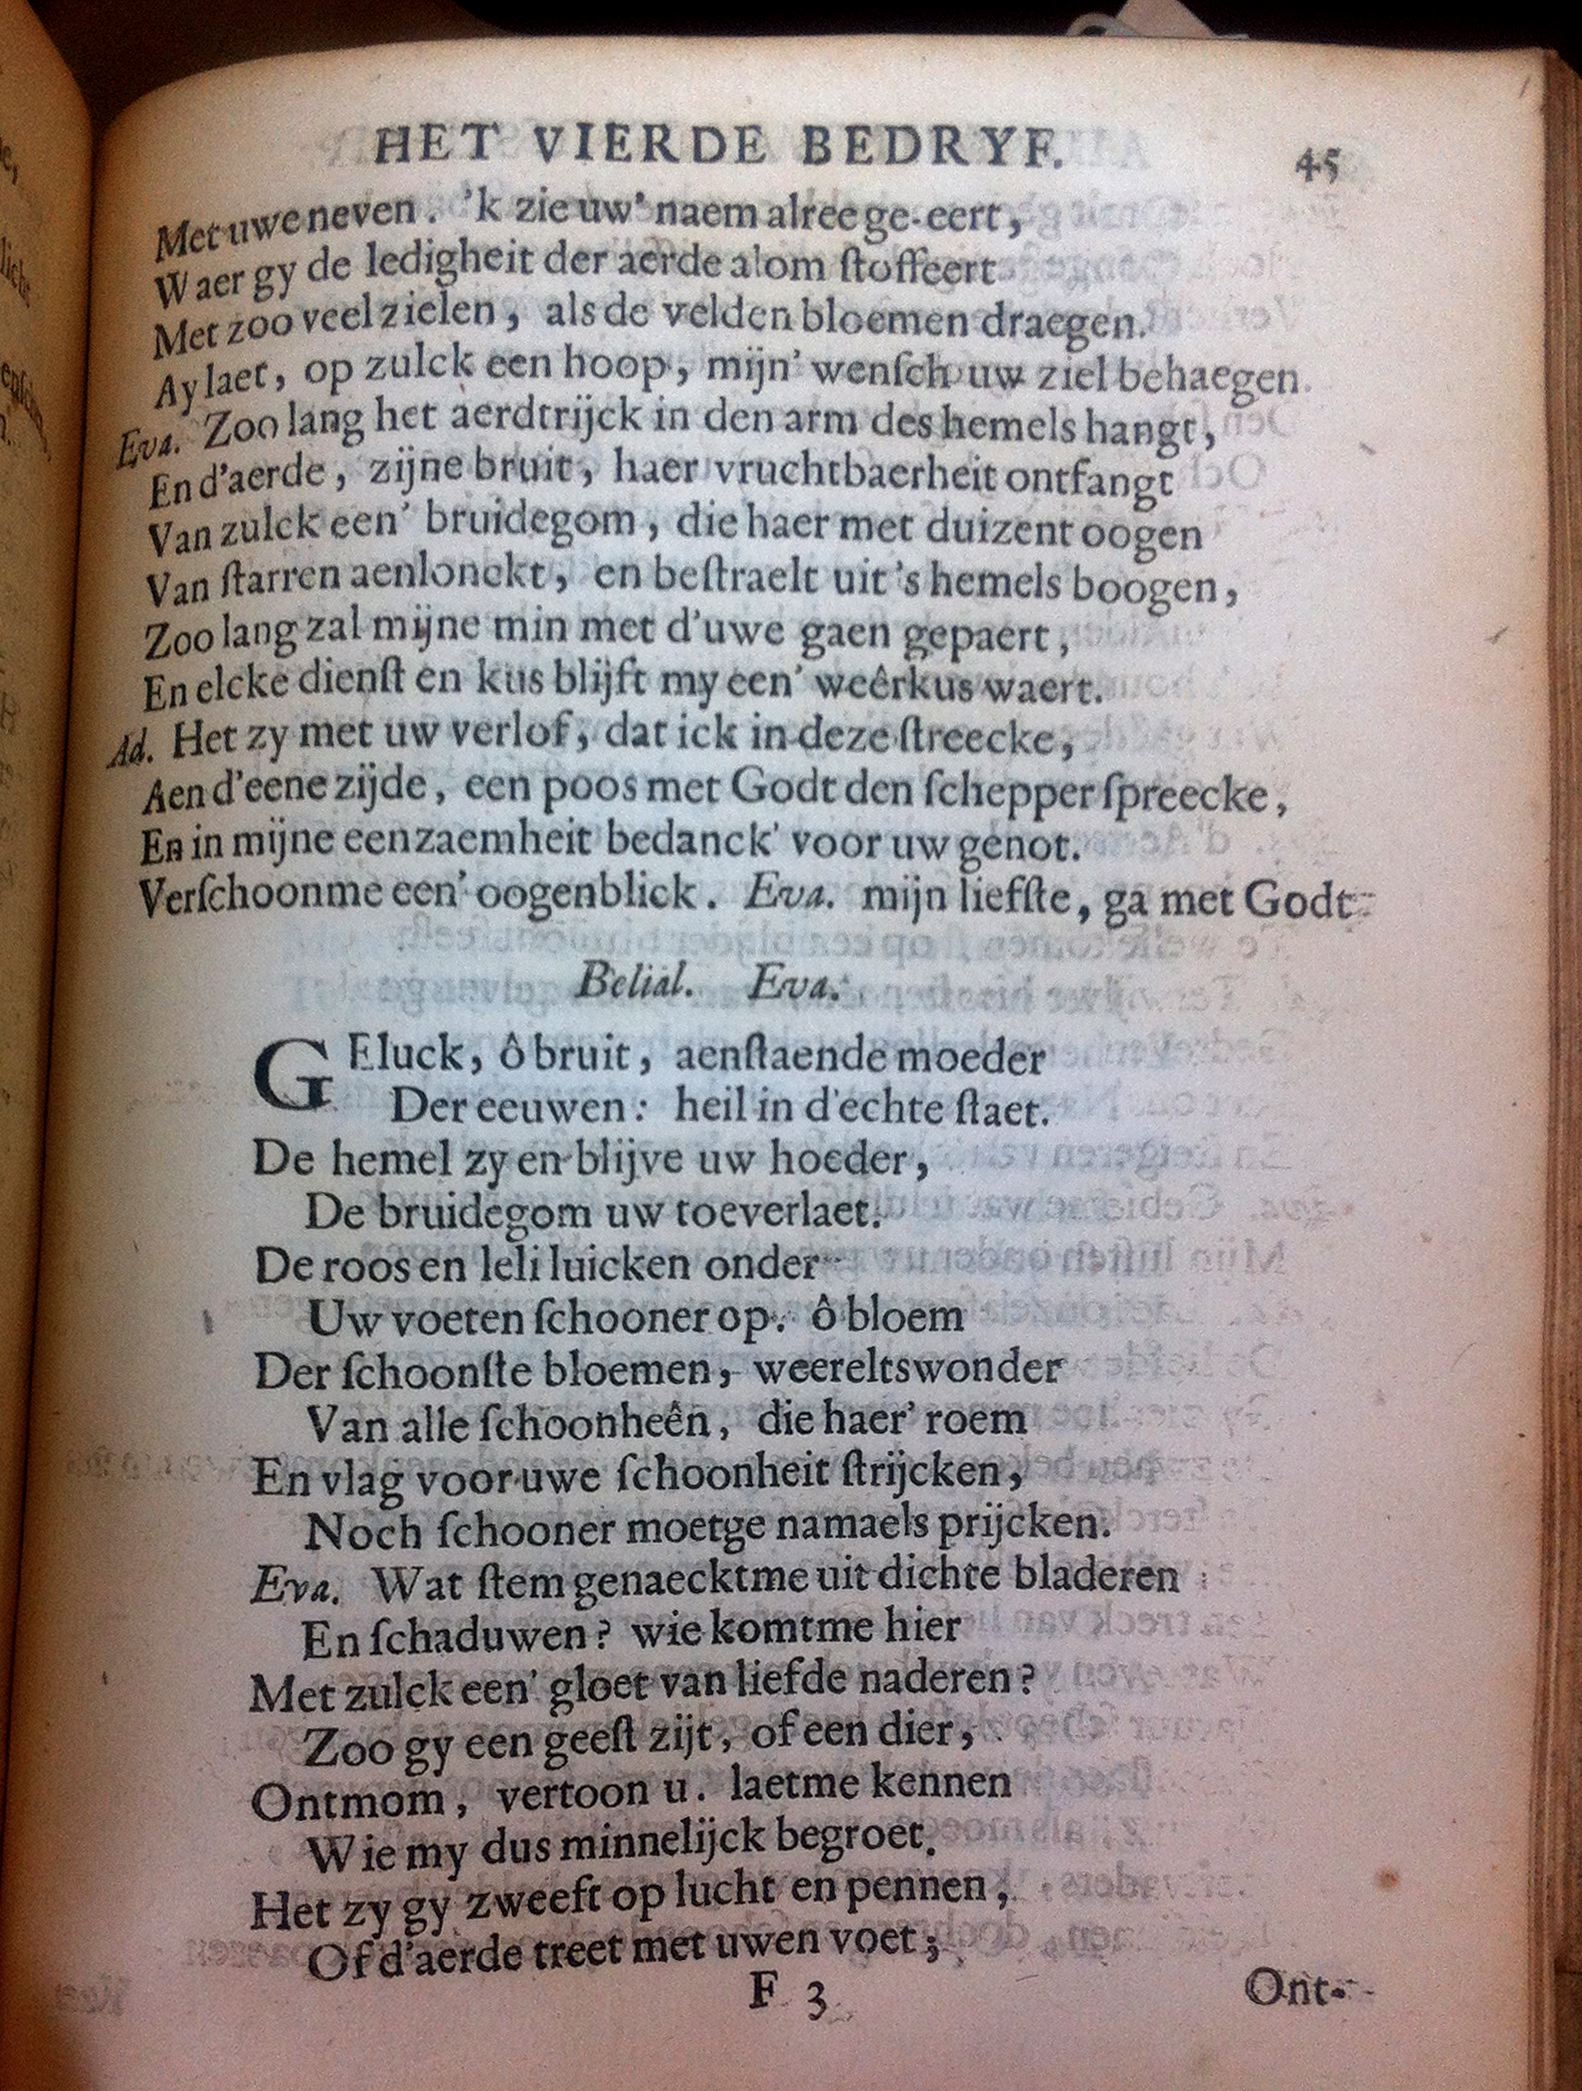 HET VIERDE BEDRYF. 45
Met uwe neven. 'k zie uw' naem alree ge-eert,
Waer gy de ledigheit der aerde alom ſtoffeert
Met zoo veel zielen, als de velden bloemen draegen.
Ay laet, op zulck een hoop, mijn' wenſch uw ziel behaegen.
Eva. Zoo lang het aerdtrijck in den arm des hemels hangt,
En d'aerde, zijne bruit, haer vruchtbaerheit ontfangt
Van zulck een' bruidegom, die haer met duizent oogen
Van ſtarren aenlonckt, en beſtraelt uit 's hemels boogen,
Zoo lang zal mijne min met d'uwe gaen gepaert,
En elcke dienſt en kus blijft my een' weêrkus waert.
Ad. Het zy met uw verlof, dat ick in deze ſtreecke,
Aen d'eene zijde, een poos met Godt den ſchepper ſpreecke,
En in mijne eenzaemheit bedanck' voor uw genot.
Verſchoonme een' oogenblick. Eva. mijn liefſte, ga met Godt
Belial. Eva.
GEluck, ô bruit, aenſtaende moeder
Der eeuwen: heil in d'echte ſtaet.
De hemel zy en blijve uw hoeder,
De bruidegom uw toeverlaet.
De roos en leli luicken onder
Uw voeten ſchooner op. ô bloem
Der ſchoonſte bloemen, weereltswonder
Van alle ſchoonheên, die haer' roem
En vlag voor uwe ſchoonheit ſtrijcken,
Noch ſchooner moetge namaels prijcken.
Eva. Wat ſtem genaecktme uit dichte bladeren
En ſchaduwen? wie komtme hier
Met zulck een' gloet van liefde naderen?
Zoo gy een geeſt zijt, of een dier,
Ontmom, vertoon u. laetme kennen
Wie my dus minnelijck begroet.
Het zy gy zweeft op lucht en pennen,
Of d'aerde treet met uwen voet;
F 3 Ont-